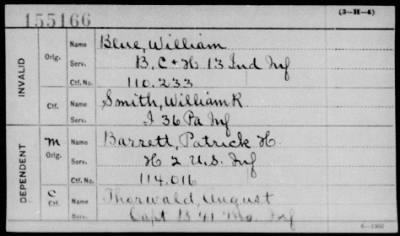 155166
(3-H-4)
INVALID
Orig.
Name Blue, William
Serv. B. C & H. 13 Ind Inf
Ctf. No. 110.233
Ctf.
Name Smith, William R.
Serv. I 36 Pa Inf
DEPENDENT
M
Orig.
Name Barrett, Patrick H.
Serv. H 2 U.S. Inf
Ctf. No. 114.016
C
Ctf.
Name Thorwald, August
Serv. Capt B 41 Mo. Inf